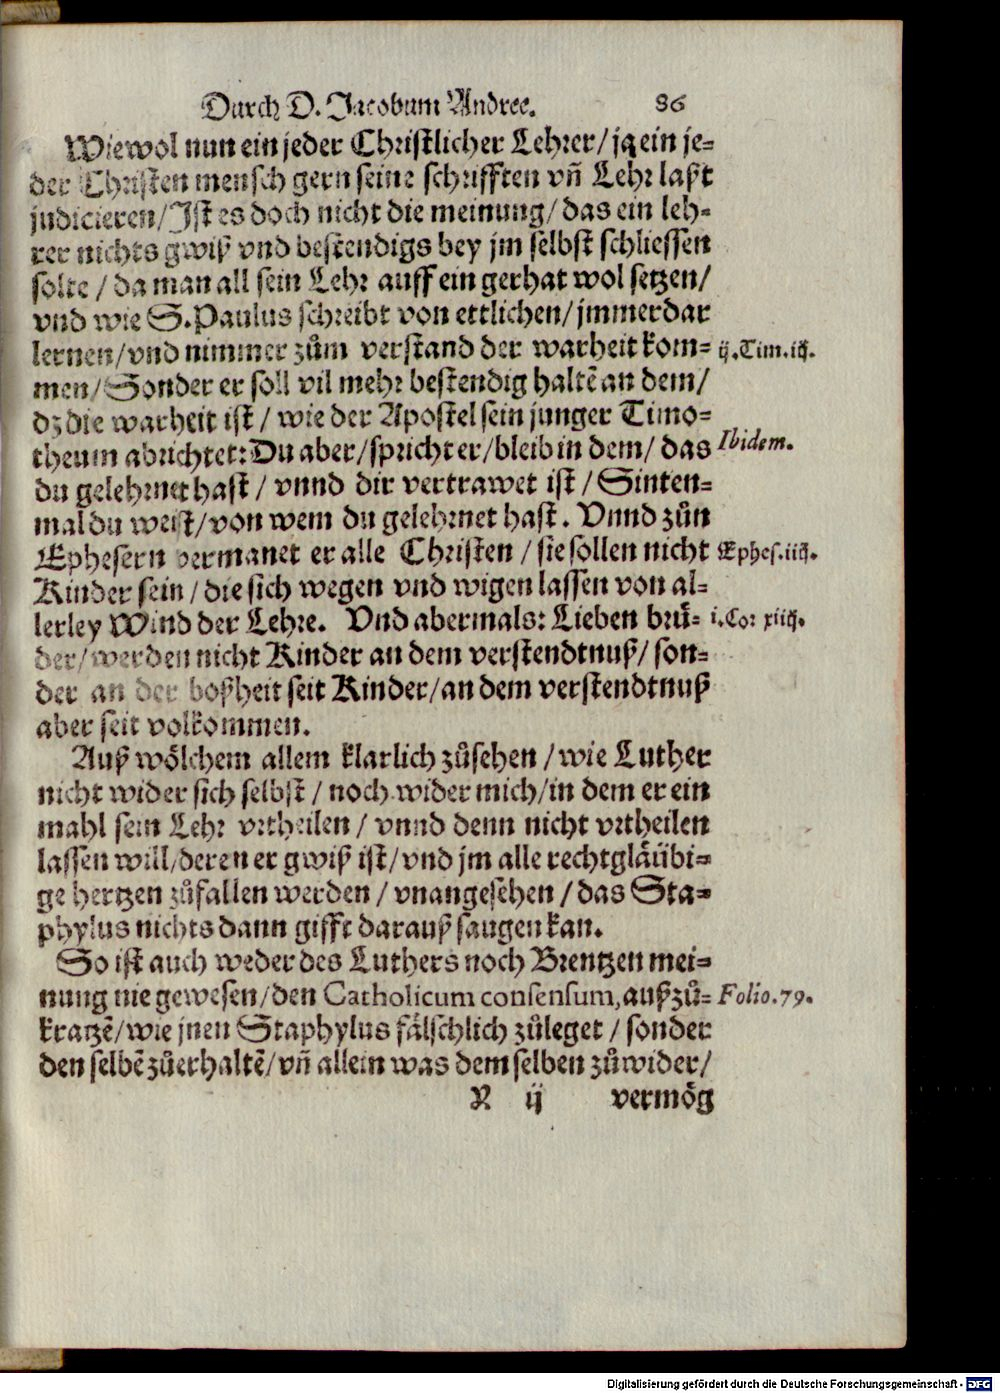 Durch D. Jacobum Andree. 86
Wiewol nun ein jeder Christlicher Lehrer/ ja ein je=
der Christen mensch gern seine schrifften vñ Lehr laßt
judicieren/ Jst es doch nicht die meinung/ das ein leh=
rer nichts gwiß vnd bestendigs bey jm selbst schliessen
solte / da man all sein Lehr auff ein gerhat wol setzen/
vnd wie S. Paulus schreibt von ettlichen/ jmmerdar
lernen/ vnd nimmer zům verstand der warheit kom= ij.Tim.iij.
men/ Sonder er soll vil mehr bestendig haltẽ an dem/
dz die warheit ist / wie der Apostel sein junger Timo=
theum abrichtet: Du aber/ spricht er/ bleib in dem/ das Ibidem.
du gelehrnet hast / vnnd dir vertrawet ist / Sinten=
mal du weist/ von wem du gelehrnet hast. Vnnd zůn
Ephesern vermanet er alle Christen / sie sollen nicht Ephes.iiij.
Kinder sein / die sich wegen vnd wigen lassen von al=
lerley Wind der Lehre. Vnd abermals: Lieben brü= i.Cor xiiij.
der/ werden nicht Kinder an dem verstendtnuß/ son=
der an der boßheit seit Kinder/ an dem verstendtnuß
aber seit volkommen.
Auß wölchem allem klarlich zůsehen / wie Luther
nicht wider sich selbst / noch wider mich/ in dem er ein
mahl sein Lehr vrtheilen / vnnd denn nicht vrtheilen
lassen will/ deren er gwiß ist/ vnd jm alle rechtgläübi=
ge hertzen zůfallen werden / vnangesehen / das Sta=
phylus nichts dann gifft darauß saugen kan.
So ist auch weder des Luthers noch Brentzen mei=
nung nie gewesen/ den Catholicum consensum, außzů= Folio.79.
kratzẽ/ wie jnen Staphylus fälschlich zůleget / sonder
den selbẽ zůerhaltẽ/ vñ allein was dem selben zůwider/
X ij vermög
Digitalisierung gefördert durch die Deutsche Forschungsgemeinschaft - DFG